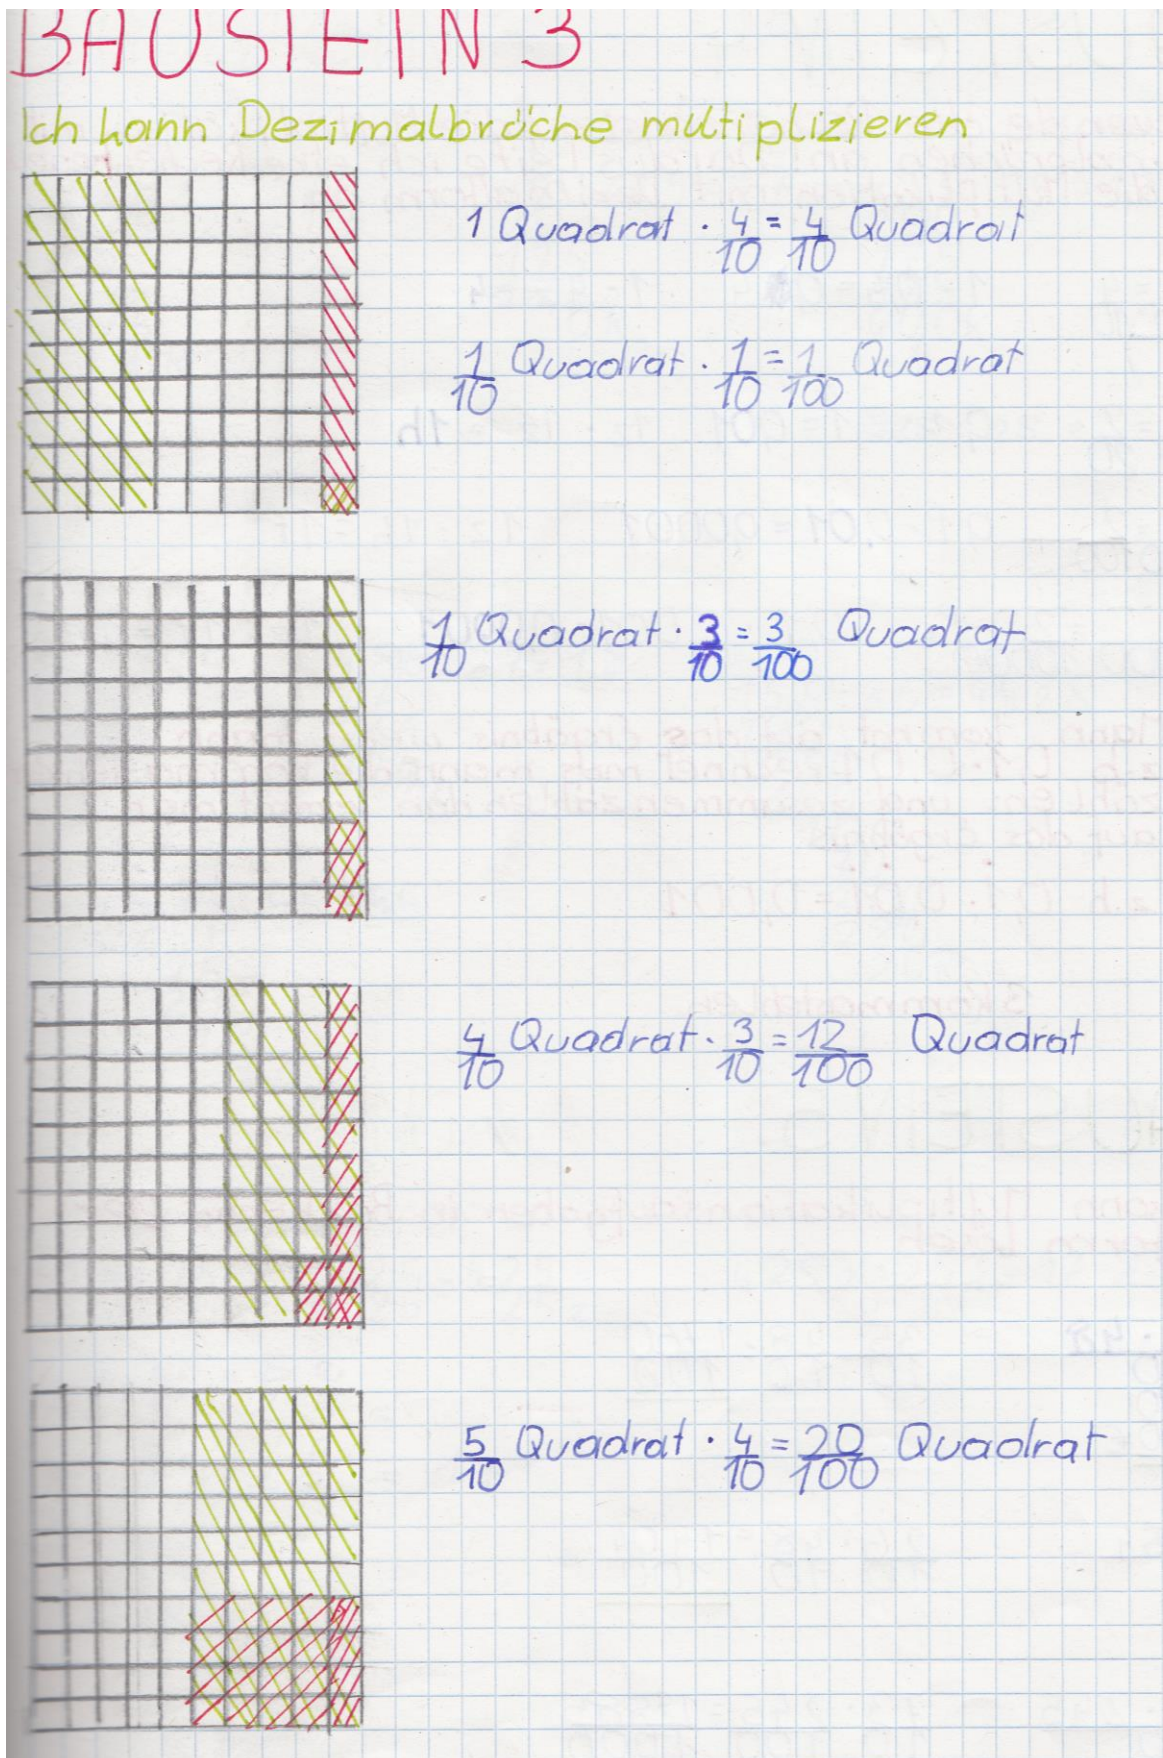 BAUSTEIN 3
Ich kann Dezimalbrüche multiplizieren
1 Quadrat · 4/10 = 4/10 Quadrat
1/10 Quadrat · 1/10 = 1/100 Quadrat
1/10 Quadrat · 3/10 = 3/100 Quadrat
4/10 Quadrat · 3/10 = 12/100 Quadrat
5/10 Quadrat · 4/10 = 20/100 Quadrat